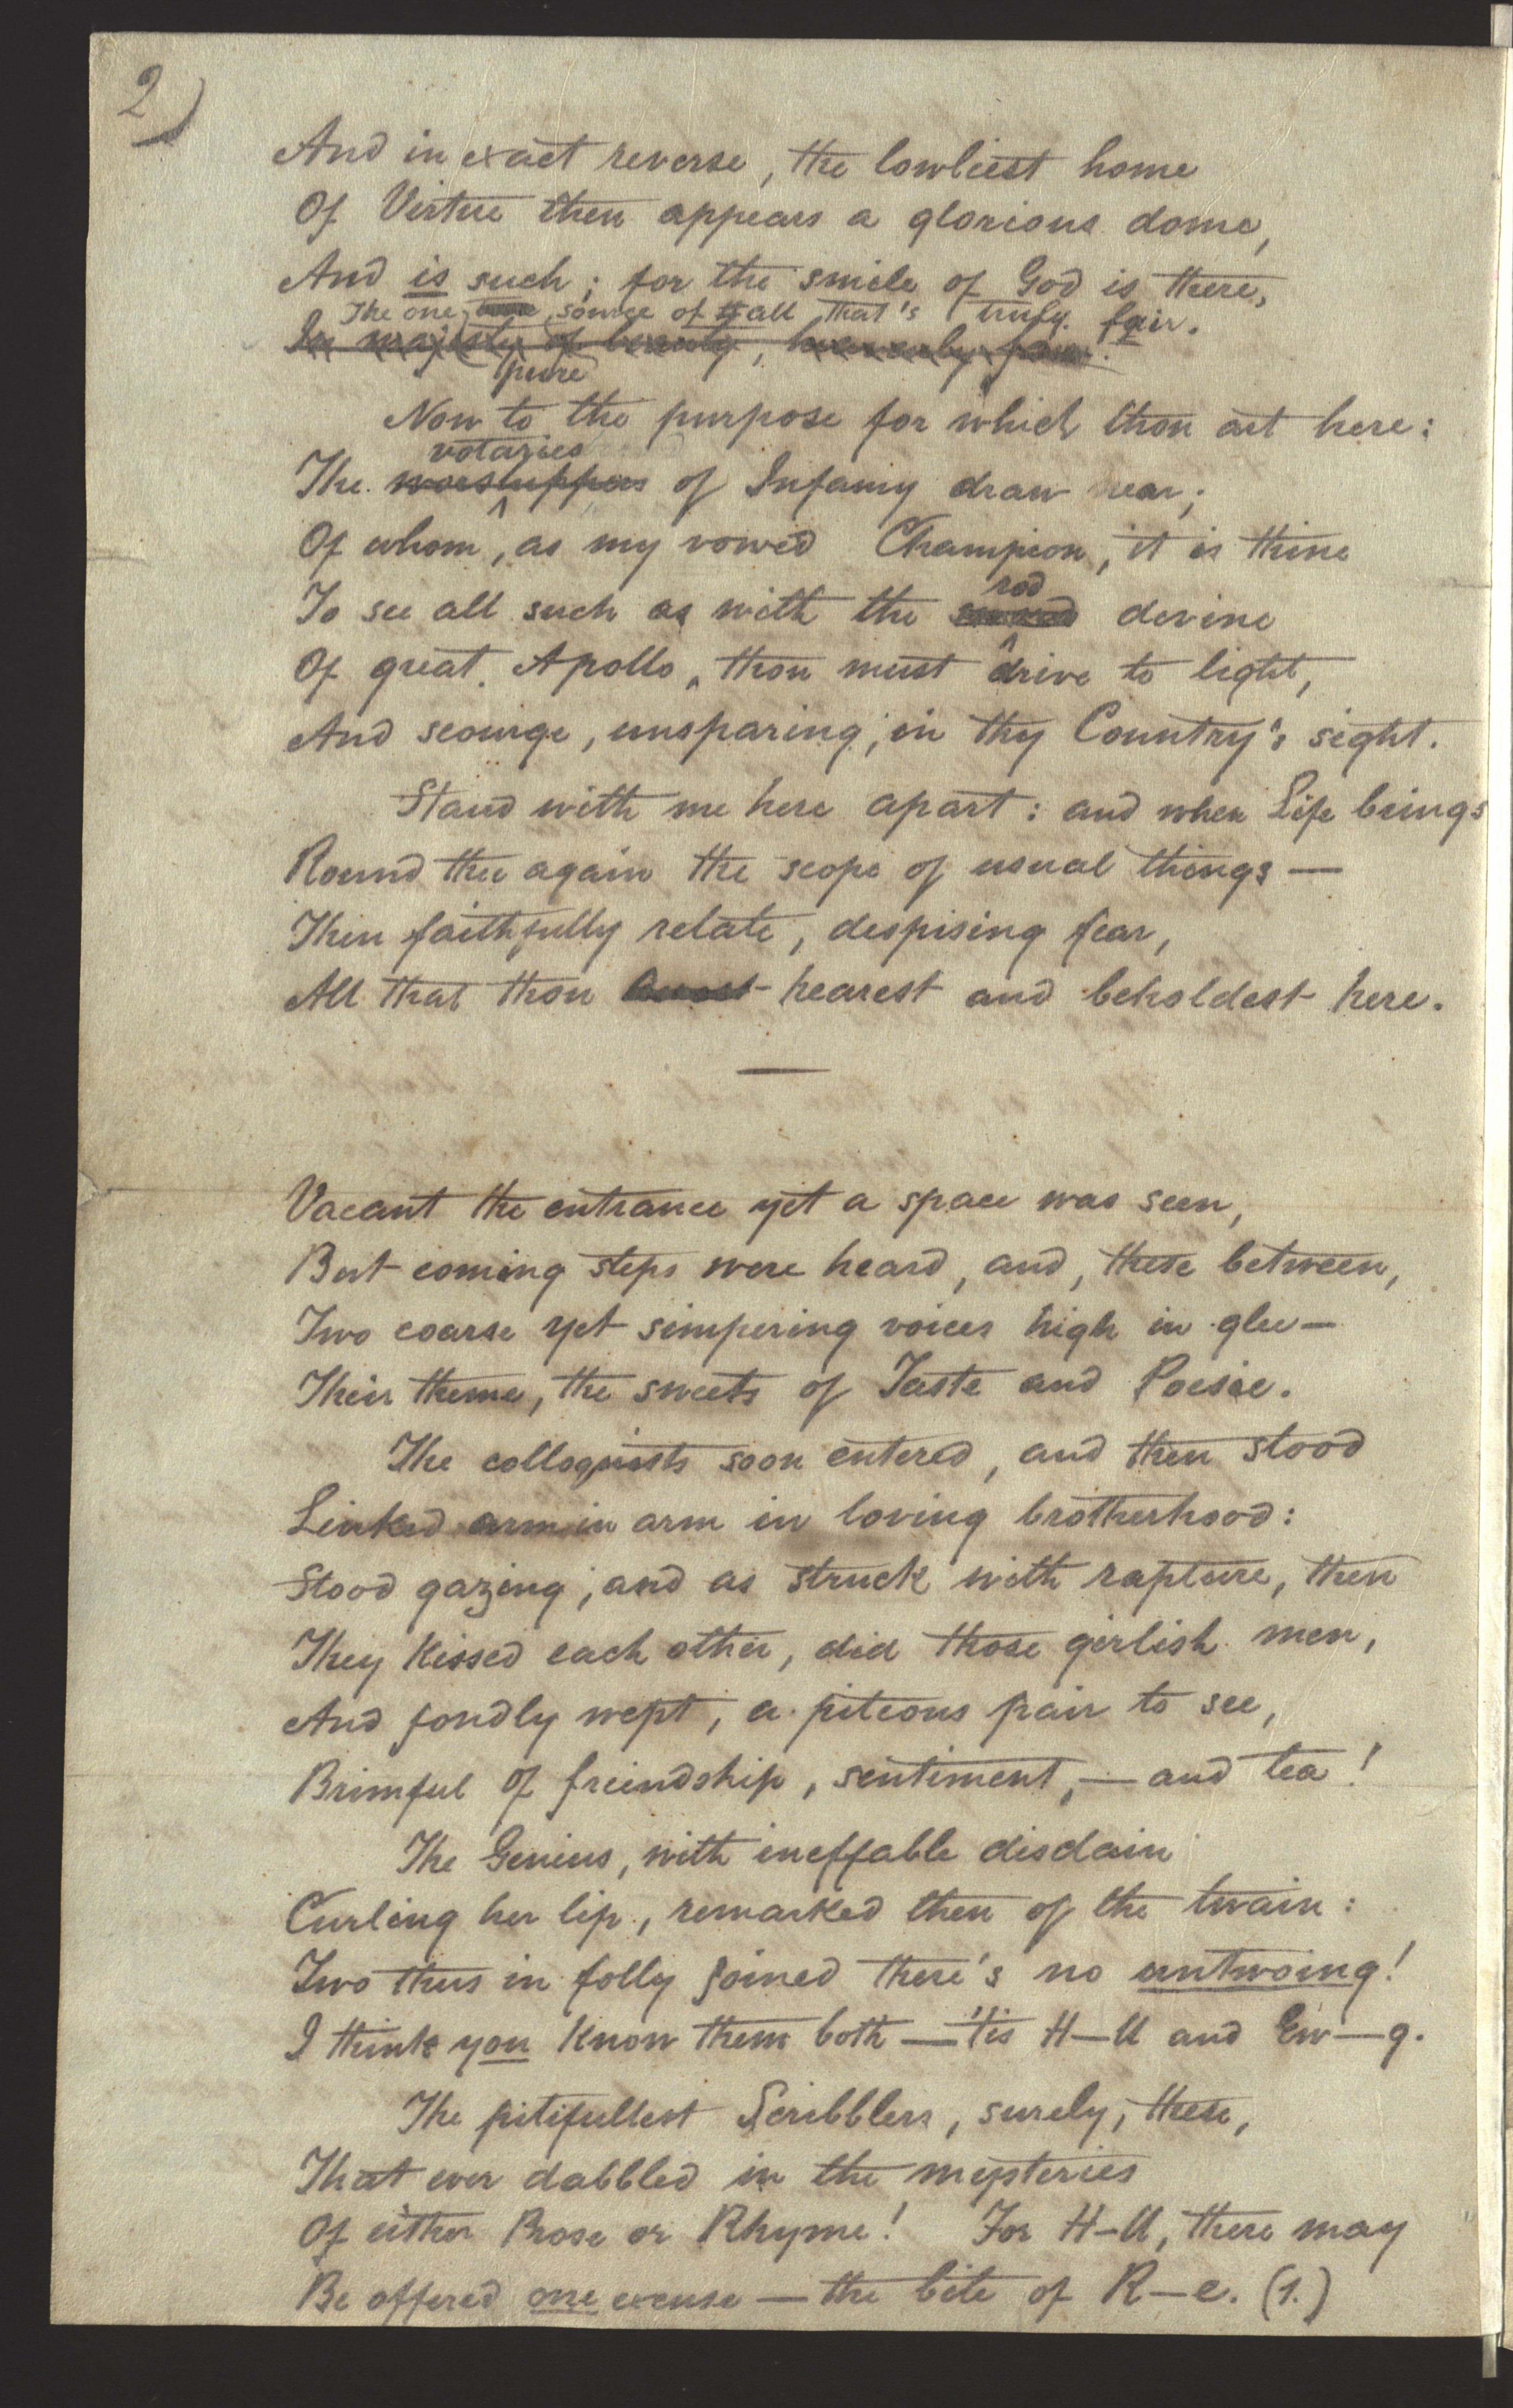 2)
And in exact reverse, the lowliest home
Of Virtue then appears a glorious dome,
And is such; for the smile of God is there,
The one, source of all that's truly fair.
In majesty of beauty, heavenly
pure
Now to the purpose for which thou art here:
votaries
The worshippers of Infamy draw near;
Of whom, as my vowed Champion, it is thine
rod
To see all such as with the devine
Of great Apollo, thou must drive to light,
And scourge, unsparing, in thy Country's sight.
Stand with me here apart: and when Life brings
Round thee again the scope of usual things —
Then faithfully relate, despising fear,
All that thou hearest and beholdest here.
Vacant the entrance yet a space was seen,
But coming steps were heard, and, these between,
Two coarse yet simpering voices high in glee —
Their theme, the sweets of Taste and Poesie.
The colloquists soon entered, and then stood
Linked arm in arm in loving brotherhood:
Stood gazing; and as struck with rapture, then
They kissed each other, did those girlish men,
And fondly wept, a piteous pair to see,
Brimful of freindship, sentiment, — and tea!
The Genius, with ineffable disdain
Curling her lip, remarked then of the twain:
Two thus in folly joined there's no untwoing!
I think you know them both — 'tis H—ll and Ew—g.
The pitifullest Scribblers, surely, these,
That ever dabbled in the mysteries
Of either Prose or Rhyme! For H—ll, there may
Be offered one excuse — the bite of R—e. (1.)